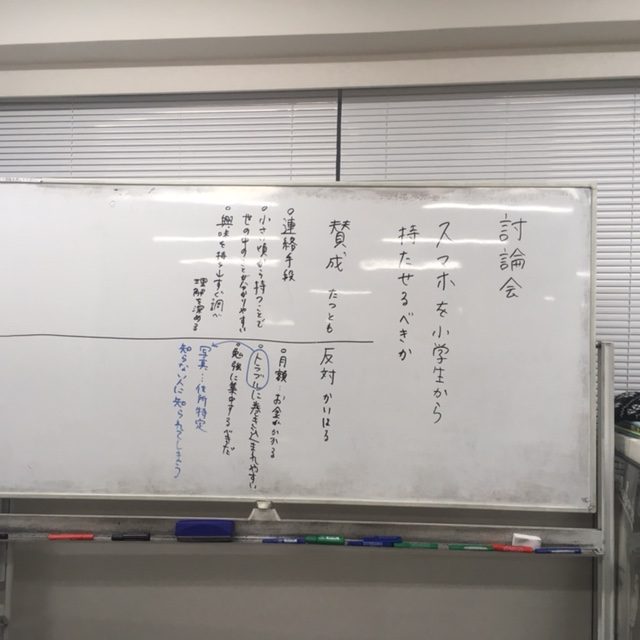 討論会
スマホを小学生から
持たせるべきか
賛成 たつとも
○連絡手段
○小さい頃から持つことで
世の中のことが分かりやすい
○興味を持ちすぐ調べ
理解を深める
反対 かいはる
○月額…お金がかかる
○トラブルに巻き込まれやすい
○勉強に集中するべきだ
写真…住所特定
知らない人に知られてしまう